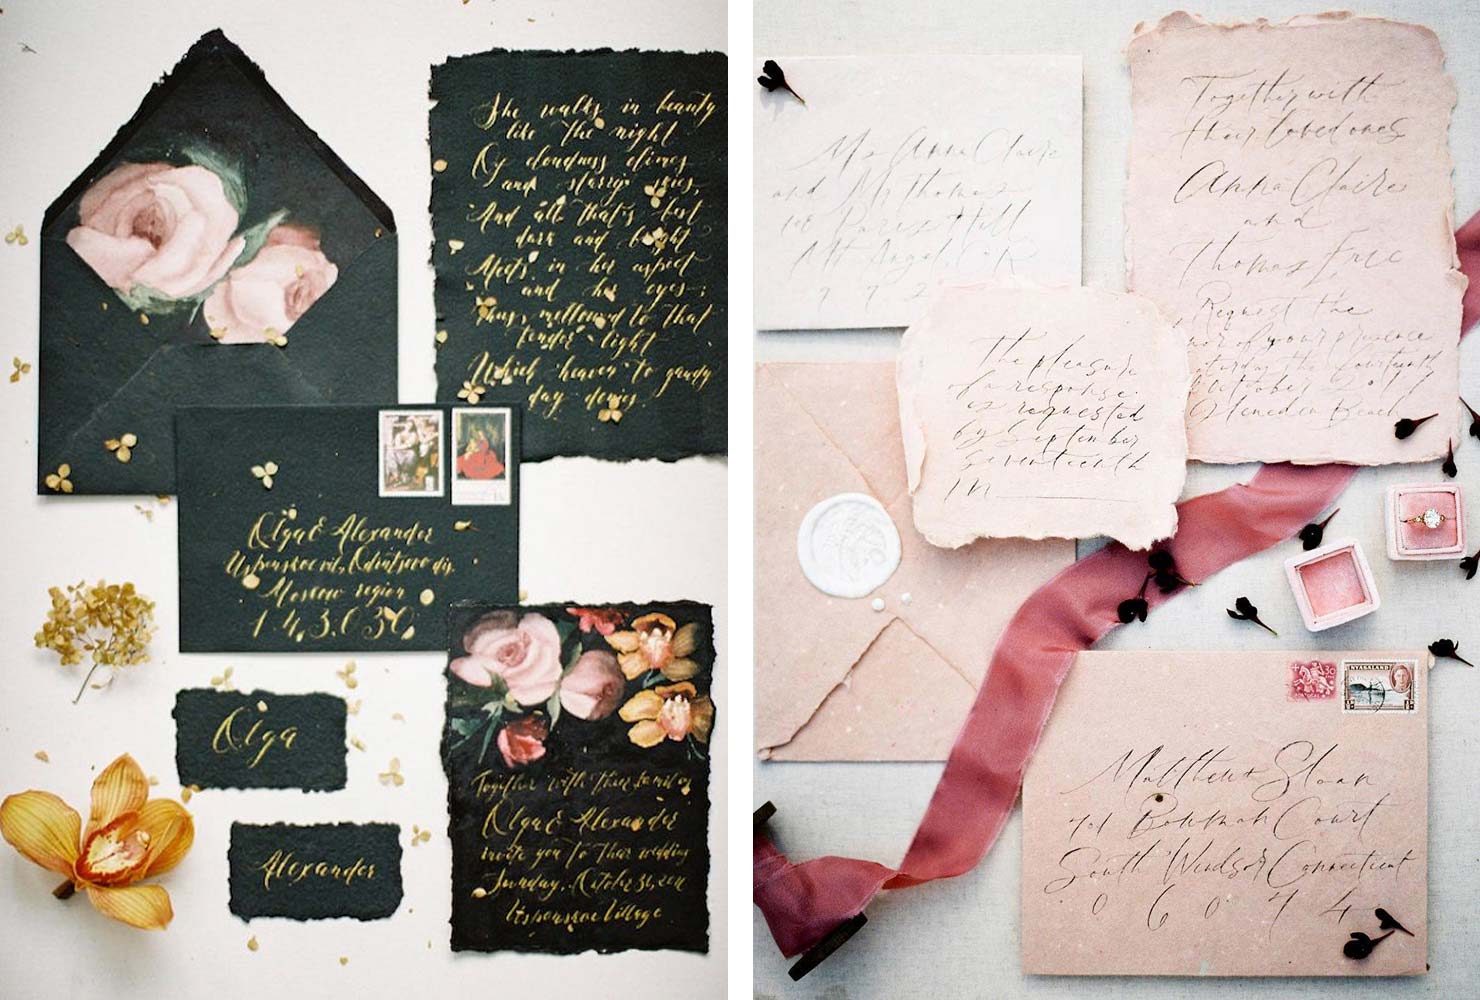 She walks in beauty
like the night
Of cloudness climes
and starry skies,
And all that's best
dark and bright
Meets in her aspect
and her eyes;
Thus mellowed to that
tender light
Which heaven to gaudy
day denies.
Olga & Alexander
Moscow region
143030
Olga
Alexander
Together with their families
Olga & Alexander
invite you to their wedding
Sunday, October 31, 2011
Village
Anna Claire
and Mr Thomas
Hill
Mt Angel
Together with
their loved ones
Anna Claire
and
Thomas
Request the
of your presence
October
Beach
The pleasure
of a response
is requested
by September
seventeenth
M
NYASALAND
Matthew Sloan
701 Court
South Windsor Connecticut
06074